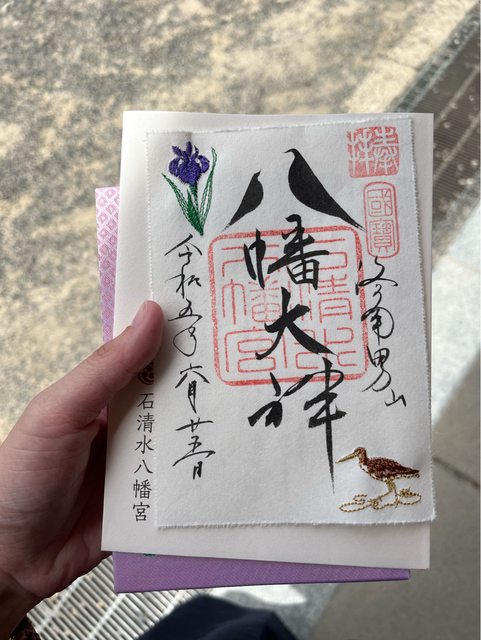 奉拝
國寶
洛南男山
八幡大神
石清水八幡宮
令和五年六月廿五日
石清水八幡宮